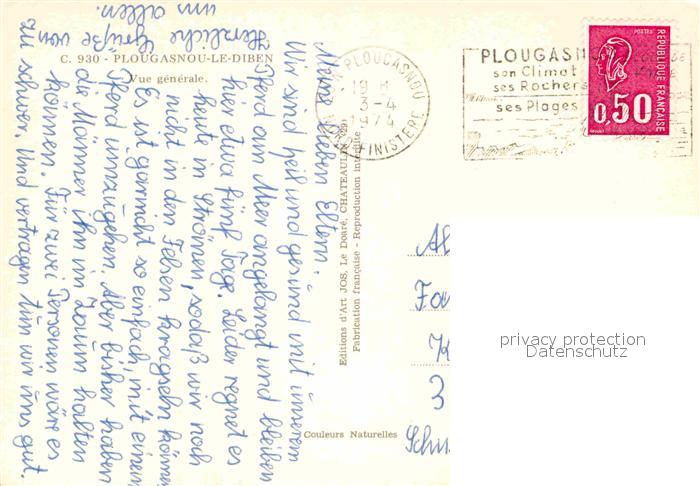 C. 930 - PLOUGASNOU-LE-DIBEN
Vue générale.
Meine lieben Eltern!
Wir sind heil und gesund mit unserem
Pferd am Meer angelangt und bleiben
hier etwa fünf Tage. Leider regnet es
heute in Strömen, sodaß wir noch
nicht in den Felsen kraxeln können.
Es ist garnicht so einfach, mit einem
Pferd umzugehen. Aber bisher haben
die Männer ihn im Zaum halten
können. Für zwei Personen wär es
zu schwer. Und vertragen tun wir uns gut.
Herzliche Grüße von
uns allen.
Editions d'Art JOS, Le Doaré, CHATEAULIN (29)
Fabrication française - Reproduction interdite
Couleurs Naturelles
PLOUGASNOU
19 H
3-4
1974
FINISTERE
PLOUGASN
son Climat
ses Rochers
ses Plages
POSTES
REPUBLIQUE FRANÇAISE
0,50
3
privacy protection
Datenschutz